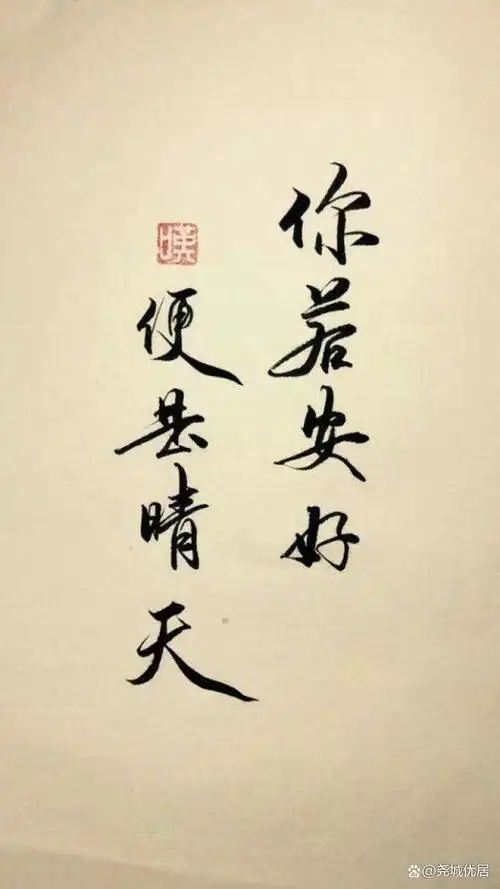 你若安好
便是晴天
尧城优居